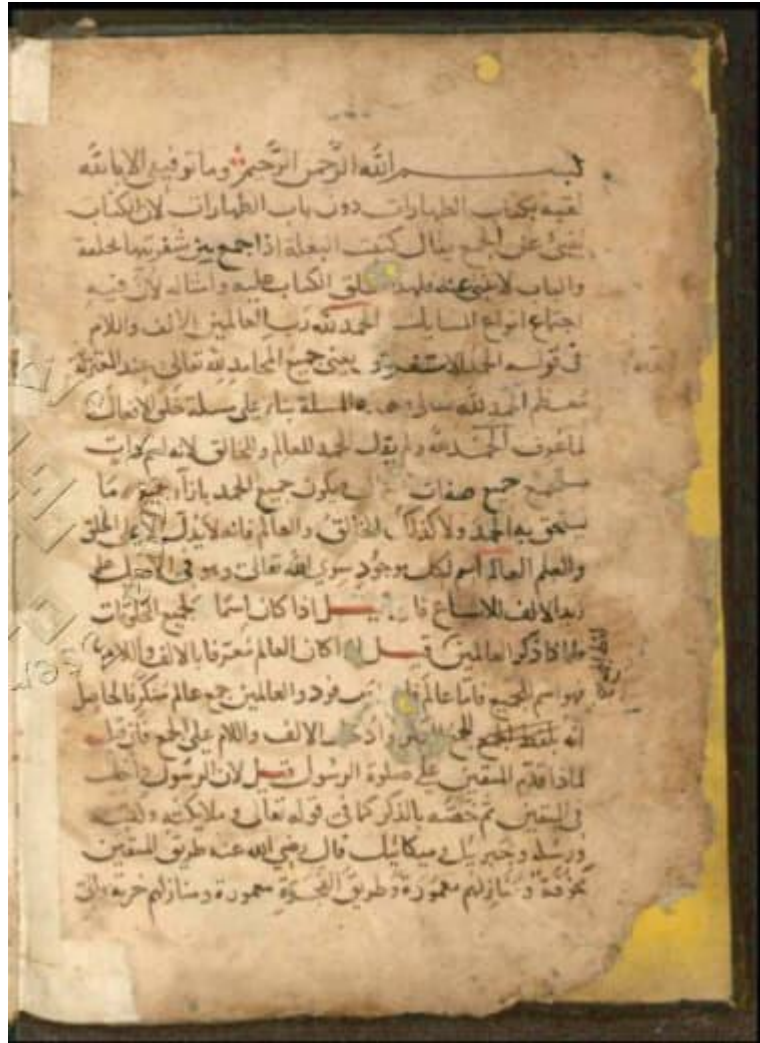 بسم الله الرحمن الرحيم وما توفيقي الا بالله
لقبه بكتاب الطهارات دون باب الطهارات لان الكتاب
ينبئ عن الجمع يقال كتبت البغلة اذا جمع بين شفريها بحلقة
والباب لا ينبئ عنه فلهذا الكتاب عليه وامثاله لان فيه
اجتماع انواع المسايل الحمد لله رب العالمين الالف واللام
في قوله الحمد للاستغراق يعني جميع المحامد لله تعالى عند المعتزلة
معظم الحمد لله المسلة بناء على مسلة خلق الافعال
لما عرف الحمد لله ولم يقل الحمد للعالم والخالق لانه اسم ذات
جميع صفات يكون جميع الحمد بازاء جميع ما
يستحق به الحمد ولا كذلك الخالق والعالم فانه لا يدل الا على الخلق
والعلم العالم اسم لكل موجود سوى الله تعالى وهو في الاصل علم
زيد الالف للاشباع اذا كان اسما لجميع المخلوقات
فلماذا ذكر العالمين قيل اذا كان العالم معرفا بالالف واللام
فهو اسم للجميع فاما عالم فرد والعالمين جمع عالم منكر فالحاصل
انه بلفظ الجميع الالف واللام على الجمع فان قيل
لماذا قدم المتقين على صلوة الرسول قيل لان الرسول داخل
في المتقين ثم خصه بالذكر كما في قوله تعالى و ملايكته وكتبه
ورسله وجبريل وميكائيل قال رضي الله عنه طريق المتقين
مخوفة ومنازلهم معمورة وطريق الفجرة معمورة ومنازلهم خربة